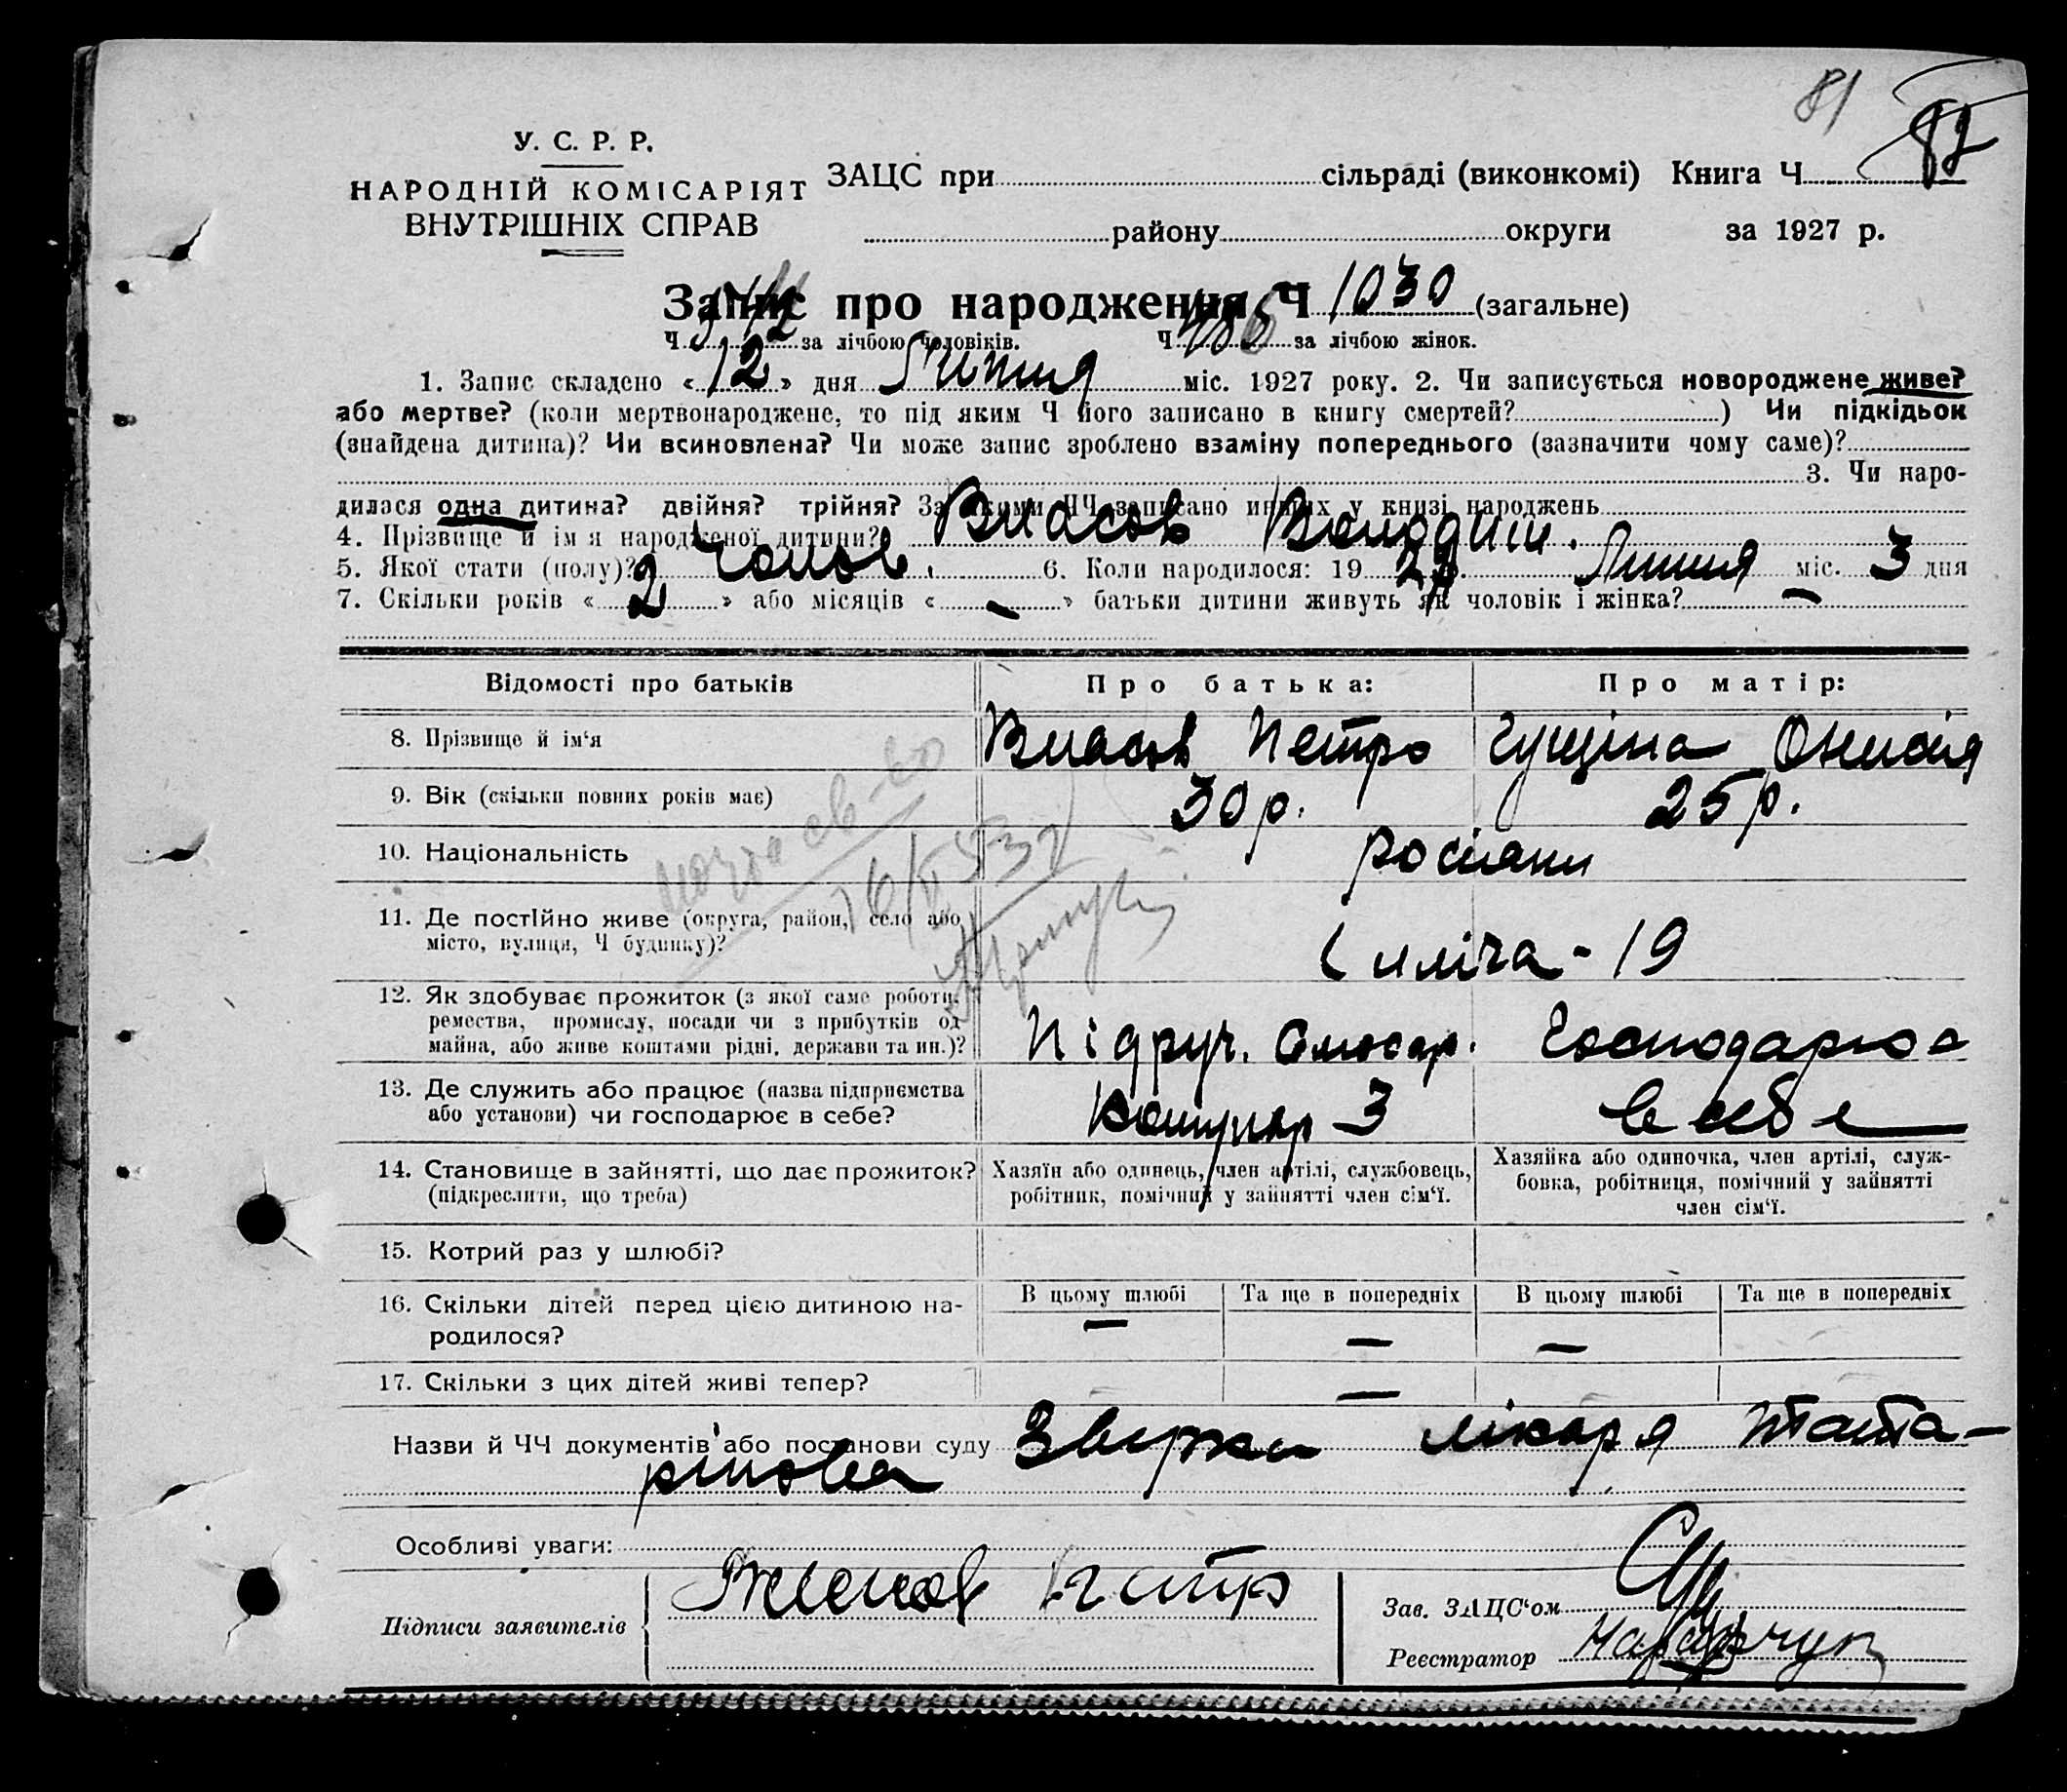 81
82
У. С. Р. Р.
НАРОДНІЙ КОМІСАРІЯТ
ВНУТРІШНІХ СПРАВ
ЗАЦС при сільраді (виконкомі) Книга Ч
району округи за 1927 р.
Запис про народження Ч 1030 (загальне)
Ч за лічбою чоловіків. Ч за лічбою жінок.
1. Запис складено «12» дня Липня міс. 1927 року. 2. Чи записується новороджене живе?
або мертве? (коли мертвонароджене, то під яким Ч його записано в книгу смертей? ) Чи підкідьок
(знайдена дитина)? Чи всиновлена? Чи може запис зроблено взаміну попереднього (зазначити чому саме)?
3. Чи наро-
дилася одна дитина? двійня? трійня? За якими ЧЧ записано инших у книзі народжень
4. Прізвище й ім я народженої дитини? Власов Володим.
5. Якої стати (полу)? чолов. 6. Коли народилося: 1927. Липня міс. 3 дня
7. Скільки років «2» або місяців «—» батьки дитини живуть як чоловік і жінка? —
Відомості про батьків Про батька: Про матір:
8. Прізвище й ім‘я Власов Петро Гущіна Онисія
9. Вік (скільки повних років має) 30 р. 25 р.
10. Національність росіяни
11. Де постійно живе (округа, район, село або
місто, вулиця, Ч будинку)? Ілліча - 19
12. Як здобуває прожиток (з якої саме роботи,
ремества, промислу, посади чи з прибутків од
майна, або живе коштами рідні, держави та ин.)? Підруч. Слюсар. Господарює
13. Де служить або працює (назва підприємства
або установи) чи господарює в себе? З в себе
14. Становище в зайнятті, що дає прожиток?
(підкреслити, що треба)
Хазяїн або одинець, член артілі, службовець,
робітник, помічний у зайнятті член сім‘ї.
Хазяйка або одиночка, член артілі, служ-
бовка, робітниця, помічний у зайнятті
член сім‘ї.
15. Котрий раз у шлюбі?
16. Скільки дітей перед цією дитиною на-
родилося?
В цьому шлюбі Та ще в попередніх В цьому шлюбі Та ще в попередніх
— — —
17. Скільки з цих дітей живі тепер? —
Назви й ЧЧ документів або постанови суду лікаря Тата-
рінова
Особливі уваги:
Підписи заявителів Власов Петр
Зав. ЗАЦС‘ом
Реєстратор